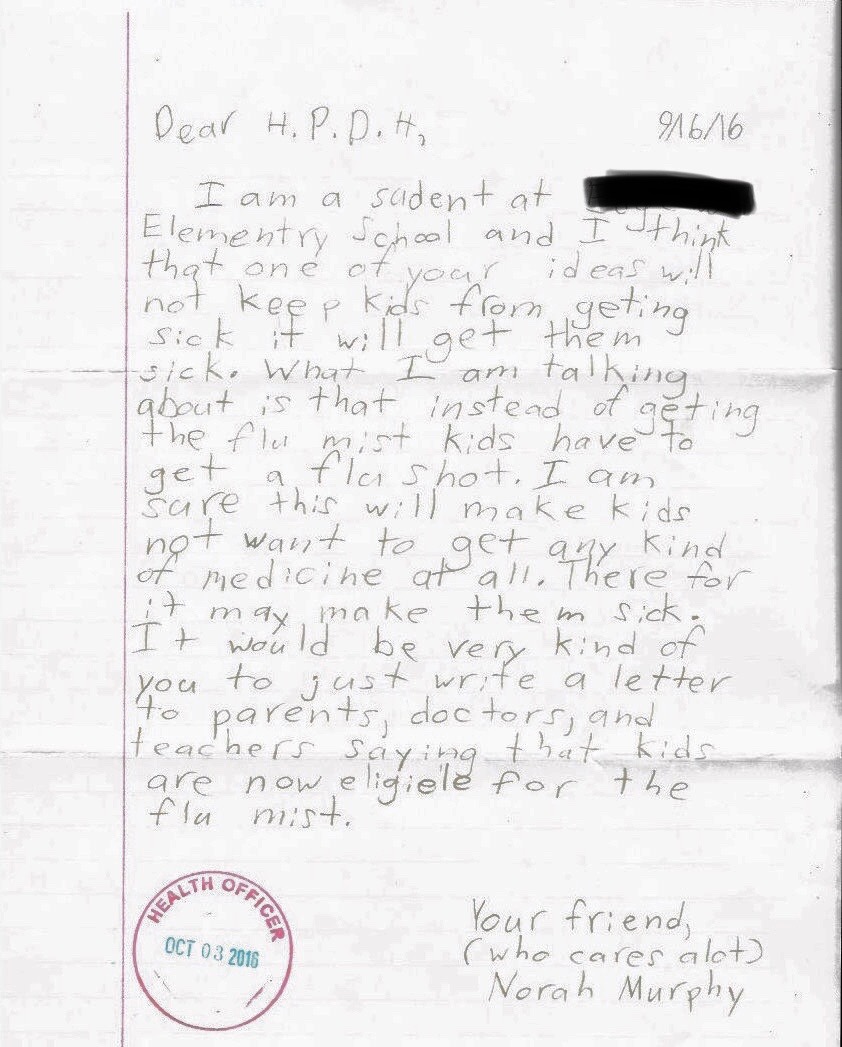 Dear H.P.D.H, 9/16/16
I am a sudent at
Elementry School and I think
that one of your ideas will
not keep kids from geting
sick it will get them
sick. What I am talking
about is that instead of geting
the flu mist kids have to
get a flu shot. I am
sure this will make kids
not want to get any kind
of medicine at all. There for
it may make them sick.
It would be very kind of
you to just write a letter
to parents, doctors, and
teachers saying that kids
are now eligiele for the
flu mist.
HEALTH OFFICER
OCT 03 2016
Your friend,
(who cares alot)
Norah Murphy